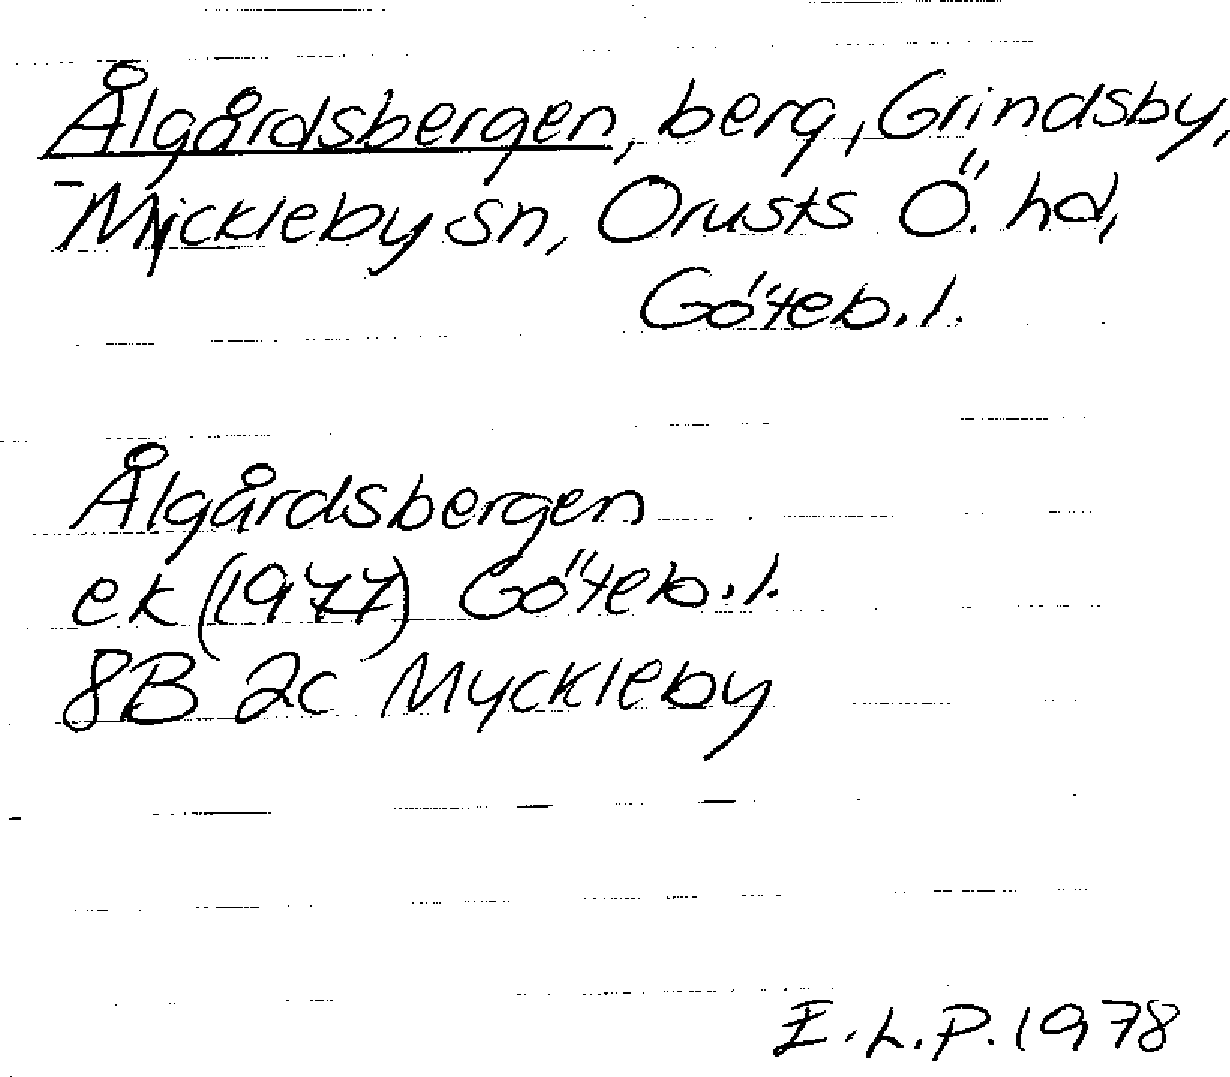 Ålgårdsbergen, berg, Grindsby,
Myckleby sn, Orusts Ö. hd,
Göteb. l.
Ålgårdsbergen
ek (1977) Göteb. l.
8B 2c Myckleby
E.L.P. 1978